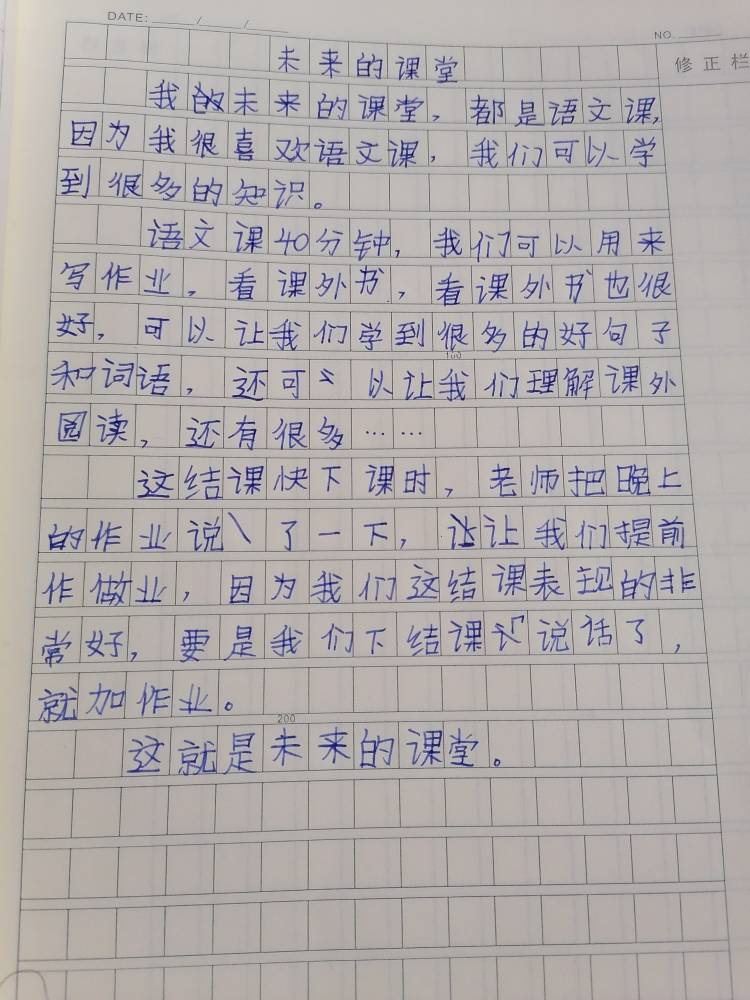 DATE: / /
NO.
修正栏
未来的课堂
我的未来的课堂，都是语文课，
因为我很喜欢语文课，我们可以学
到很多的知识。
语文课40分钟，我们可以用来
写作业，看课外书，看课外书也很
好，可以让我们学到很多的好句子
100
和词语，还可以让我们理解课外
阅读，还有很多……
这结课快下课时，老师把晚上
的作业说了一下，让我们提前
作做业，因为我们这结课表现的非
常好，要是我们下结课说话了，
就加作业。
200
这就是未来的课堂。